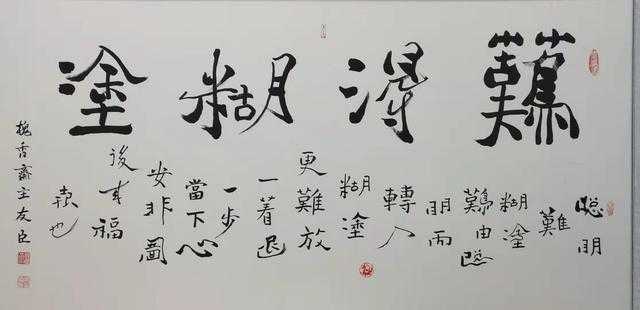 難得糊塗
聰明
難
糊塗
難由聰
明而
轉入
糊塗
更難放
一着退
一步
當下心
安非圖
後来福
報也
槐香齋主友臣